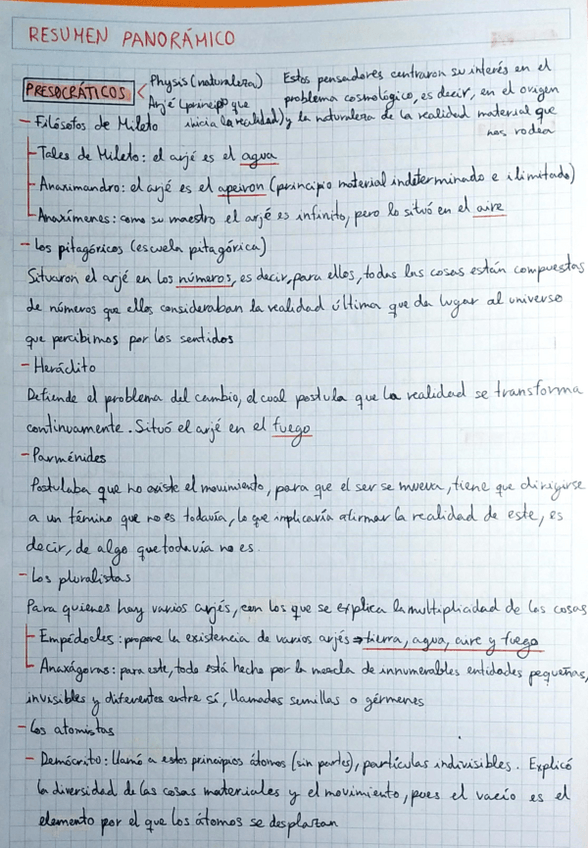 RESUMEN PANORÁMICO
PRESOCRÁTICOS < Physis (naturaleza) Estos pensadores centraron su interés en el
Arjé (principio que problema cosmológico, es decir, en el origen
- Filósofos de Mileto inicia la realidad) y la naturaleza de la realidad material que
nos rodea
- Tales de Mileto: el arjé es el agua
- Anaximandro: el arjé es el apeiron (principio material indeterminado e ilimitado)
- Anaxímenes: como su maestro el arjé es infinito, pero lo situó en el aire
- Los pitagóricos (escuela pitagórica)
Situaron el arjé en los números, es decir, para ellos, todas las cosas están compuestas
de números que ellos consideraban la realidad última que da lugar al universo
que percibimos por los sentidos
- Heráclito
Defiende el problema del cambio, el cual postula que la realidad se transforma
continuamente. Situó el arjé en el fuego
- Parménides
Postulaba que no existe el movimiento, para que el ser se mueva, tiene que dirigirse
a un término que no es todavía, lo que implicaría afirmar la realidad de este, es
decir, de algo que todavía no es.
- Los pluralistas
Para quienes hay varios arjés, con los que se explica la multiplicidad de las cosas
- Empédocles: propone la existencia de varios arjés ⇒ tierra, agua, aire y fuego
- Anaxágoras: para este, todo está hecho por la mezcla de innumerables entidades pequeñas,
invisibles y diferentes entre sí, llamadas semillas o gérmenes
- Los atomistas
- Demócrito: llamó a estos principios átomos (sin partes), partículas indivisibles. Explicó
la diversidad de las cosas materiales y el movimiento, pues el vacío es el
elemento por el que los átomos se desplazan